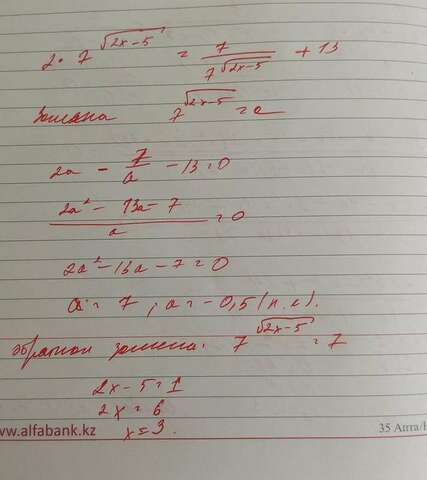 2 · 7^√(2x-5) = 7/7^√(2x-5) + 13
Замена 7^√(2x-5) = a
2a - 7/a - 13 = 0
(2a² - 13a - 7)/a = 0
2a² - 13a - 7 = 0
a = 7 ; a = -0,5 (п.к).
обратной замена: 7^√(2x-5) = 7
2x - 5 = 1
2x = 6
x = 3.
ww.alfabank.kz 35 Апта/